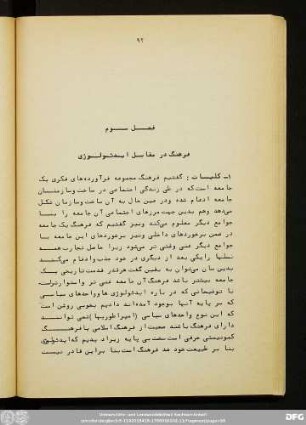 ۹۲
فصل سوم
فرهنگ در مقابل ایدئولوژی
۱ـ کلیات : گفتیم فرهنگ مجموعه فرآورده‌های فکری یک
جامعه است که در طی زندگی اجتماعی در ساخت و سازمان
جامعه ادغام شده و در عین حال به آن ساخت و سازمان شکل
می‌دهد و هم بدین جهت مرزهای اجتماعی آن جامعه را با
جوامع دیگر معلوم می‌کند و نیز گفتیم که فرهنگ یک جامعه
در ضمن برخوردهای داخلی و نیز برخوردهای این جامعه با
جوامع دیگر غنی وقتی تر می‌شود زیرا حاصل تجارب همه
نسلها را یکی بعد از دیگری در خود جذب و ادغام می‌کند
بدین سان می‌توان به یقین گفت هر قدر قدمت تاریخی یک
جامعه بیشتر باشد فرهنگ آن جامعه غنی تر و استوارتر است
با توضیحاتی که در باره ایدئولوژی ها و واحدهای سیاسی
که بر پایه آنها بوجود آمده‌اند دادیم بخوبی روشن است
که این نوع واحدهای سیاسی (امپراطوریها) نمی توانند
دارای فرهنگ باشند صحبت از فرهنگ اسلامی یا فرهنگ
کمونیستی حرفی است سخت بی پایه زیرا دیدیم که ایدئولوژی
بنا بر طبیعت خود ضد فرهنگ است بنا براین قادر نیست